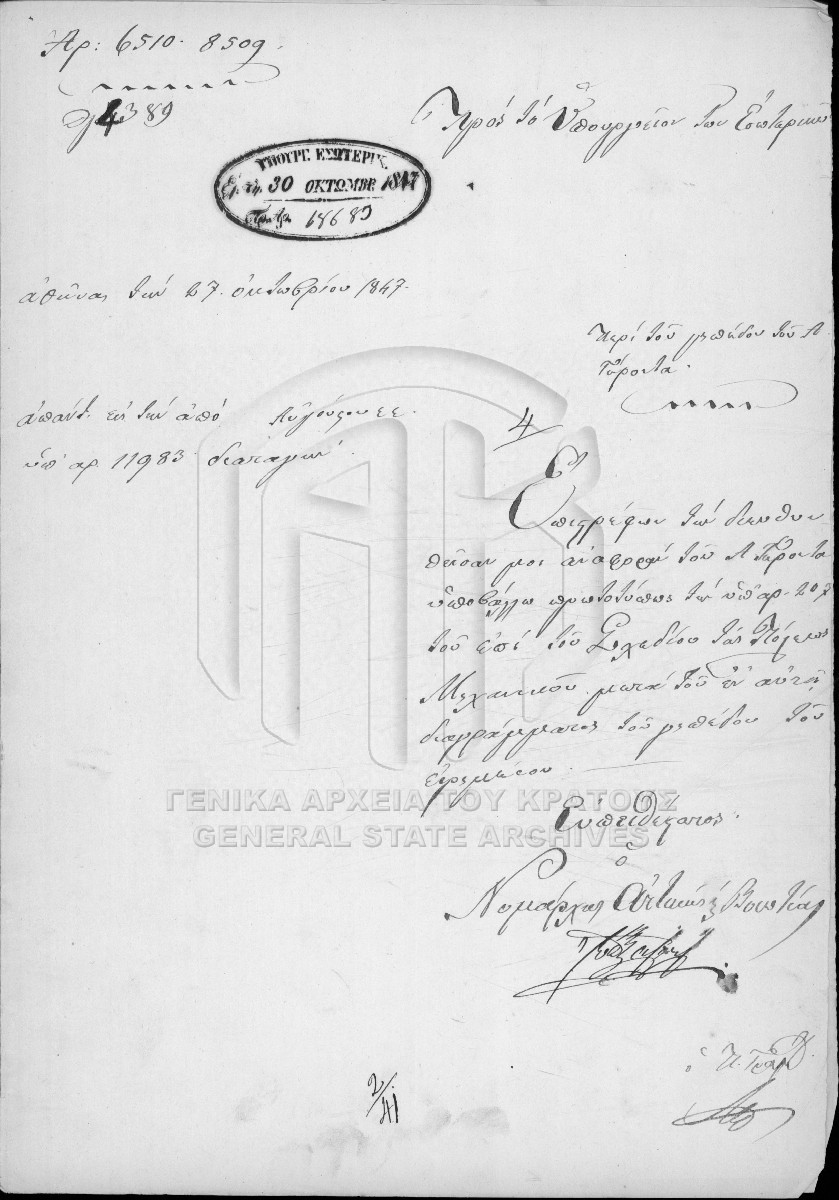 Αρ: 6510. 8509.
4389
Πρός τό Ὑπουργεῖον τῶν Ἐσωτερικῶν
ΥΠΟΥΡΓ. ΕΣΩΤΕΡΙΚ.
30 ΟΚΤΩΜΒΡ 1847
18683
Ἀθῆνας τήν 27. ὀκτωβρίου 1847.
Περί τοῦ γηπέδου τοῦ Λ
Γύροντα.
ἀπαντ. εἰς τήν ἀπό Αὐγούςου
ὑπ' αρ 11983 διαταγήν.
4
Ἐπιςρέφων τήν διευθυν
θεῖσαν μοι ἀναφοράν τοῦ Λ Γύροντα
ὑποβάλλω πρωτοτύπως τήν ὑπ' αρ. 207
τοῦ ἐπί τοῦ Σχεδίου τῆς Πόλεως
Μηχανικοῦ μετά τοῦ ἐν αὐτῇ
διαγράμματος τοῦ γηπέδου τοῦ
εἰρημένου.
Εὐπειθέςατος.
ὁ
Νομάρχης Ἀττικῆς & Βοιωτίας
ὁ
2/41
ΓΕΝΙΚΑ ΑΡΧΕΙΑ ΤΟΥ ΚΡΑΤΟΥΣ
GENERAL STATE ARCHIVES